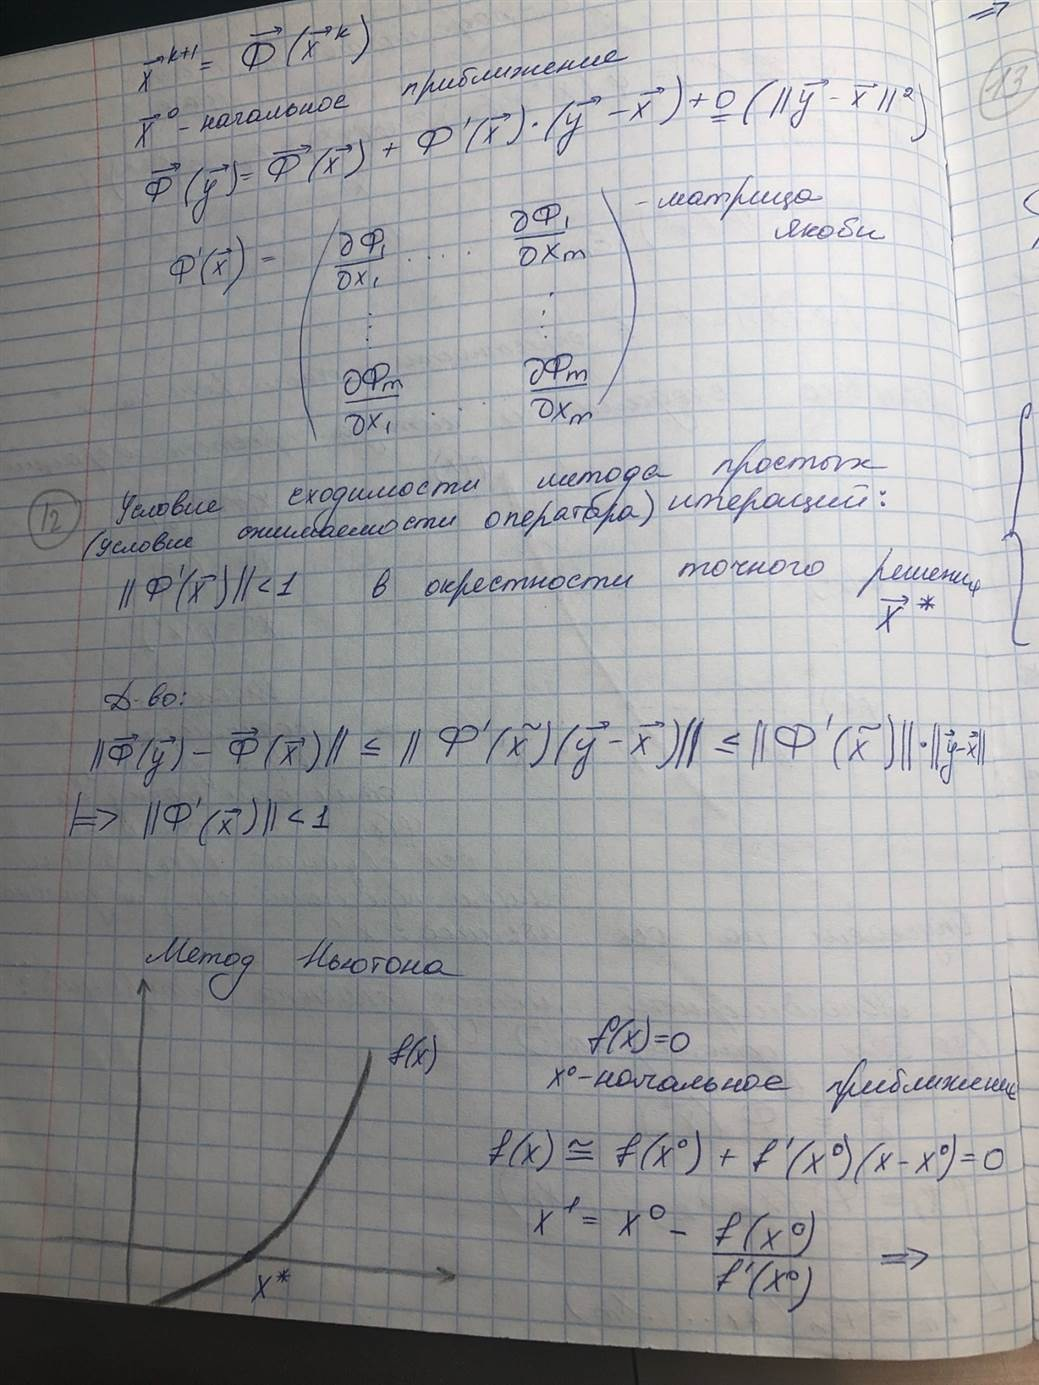 ⇒
13
x⃗^{k+1} = Φ⃗(x⃗^k)
x⃗^0 - начальное приближение
Φ⃗(y⃗) = Φ⃗(x⃗) + Φ'(x⃗)·(y⃗ - x⃗) + O(||y⃗ - x⃗||²)
Φ'(x⃗) = ( ∂Φ₁/∂x₁ .... ∂Φ₁/∂x_m ⋮ ⋮ ∂Φ_m/∂x₁ .... ∂Φ_m/∂x_m ) - матрица
Якоби
12 Условие сходимости метода простых
(условие сжимаемости оператора) итераций:
||Φ'(x⃗)|| < 1 в окрестности точного решения
x⃗*
Д-во:
||Φ⃗(y⃗) - Φ⃗(x⃗)|| ≤ ||Φ'(x̃)(y⃗ - x⃗)|| ≤ ||Φ'(x̃)||·||y⃗-x⃗||
|⇒ ||Φ'(x⃗)|| < 1
Метод Ньютона
f(x)
x*
f(x)=0
x⁰ - начальное приближение
f(x) ≅ f(x⁰) + f'(x⁰)(x - x⁰) = 0
x¹ = x⁰ - f(x⁰)/f'(x⁰) ⇒